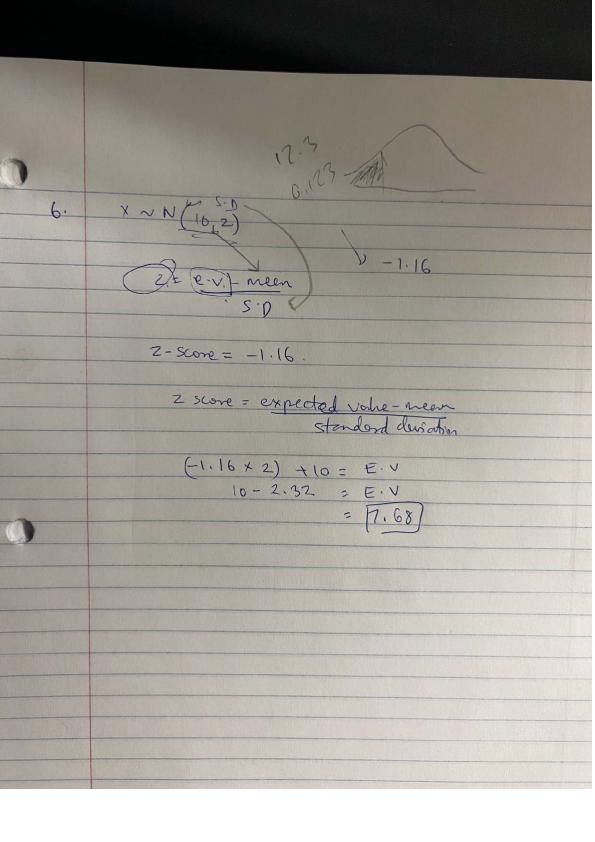 12.3
0.123
S.D
6. X ~ N(10, 2)
-1.16
z = e.v. - mean
S.D
z-score = -1.16.
z score = expected value - mean
standard deviation
(-1.16 x 2) + 10 = E.V
10 - 2.32 = E.V
= 7.68